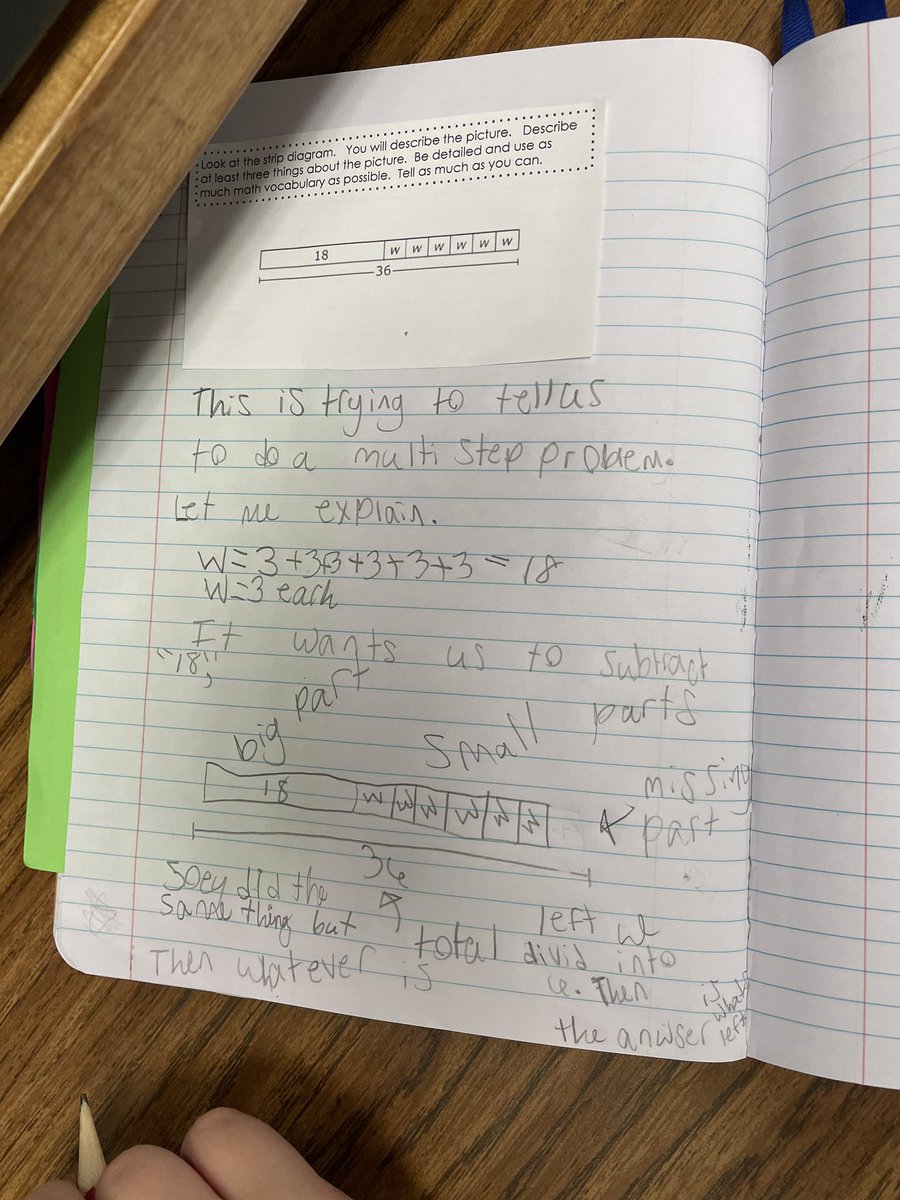 Look at the strip diagram. You will describe the picture. Describe
at least three things about the picture. Be detailed and use as
much math vocabulary as possible. Tell as much as you can.
18 w w w w w w
36
This is trying to tell us
to do a multi step problem.
Let me explain.
W=3+3+3+3+3+3=18
W=3 each
It wants us to subtract
"18",
big part
small parts
18 w w w w w w
missing part
36
total
did the
same thing but
Then whatever is
left we
divid into
6. Then
the anwser
is
whats
left